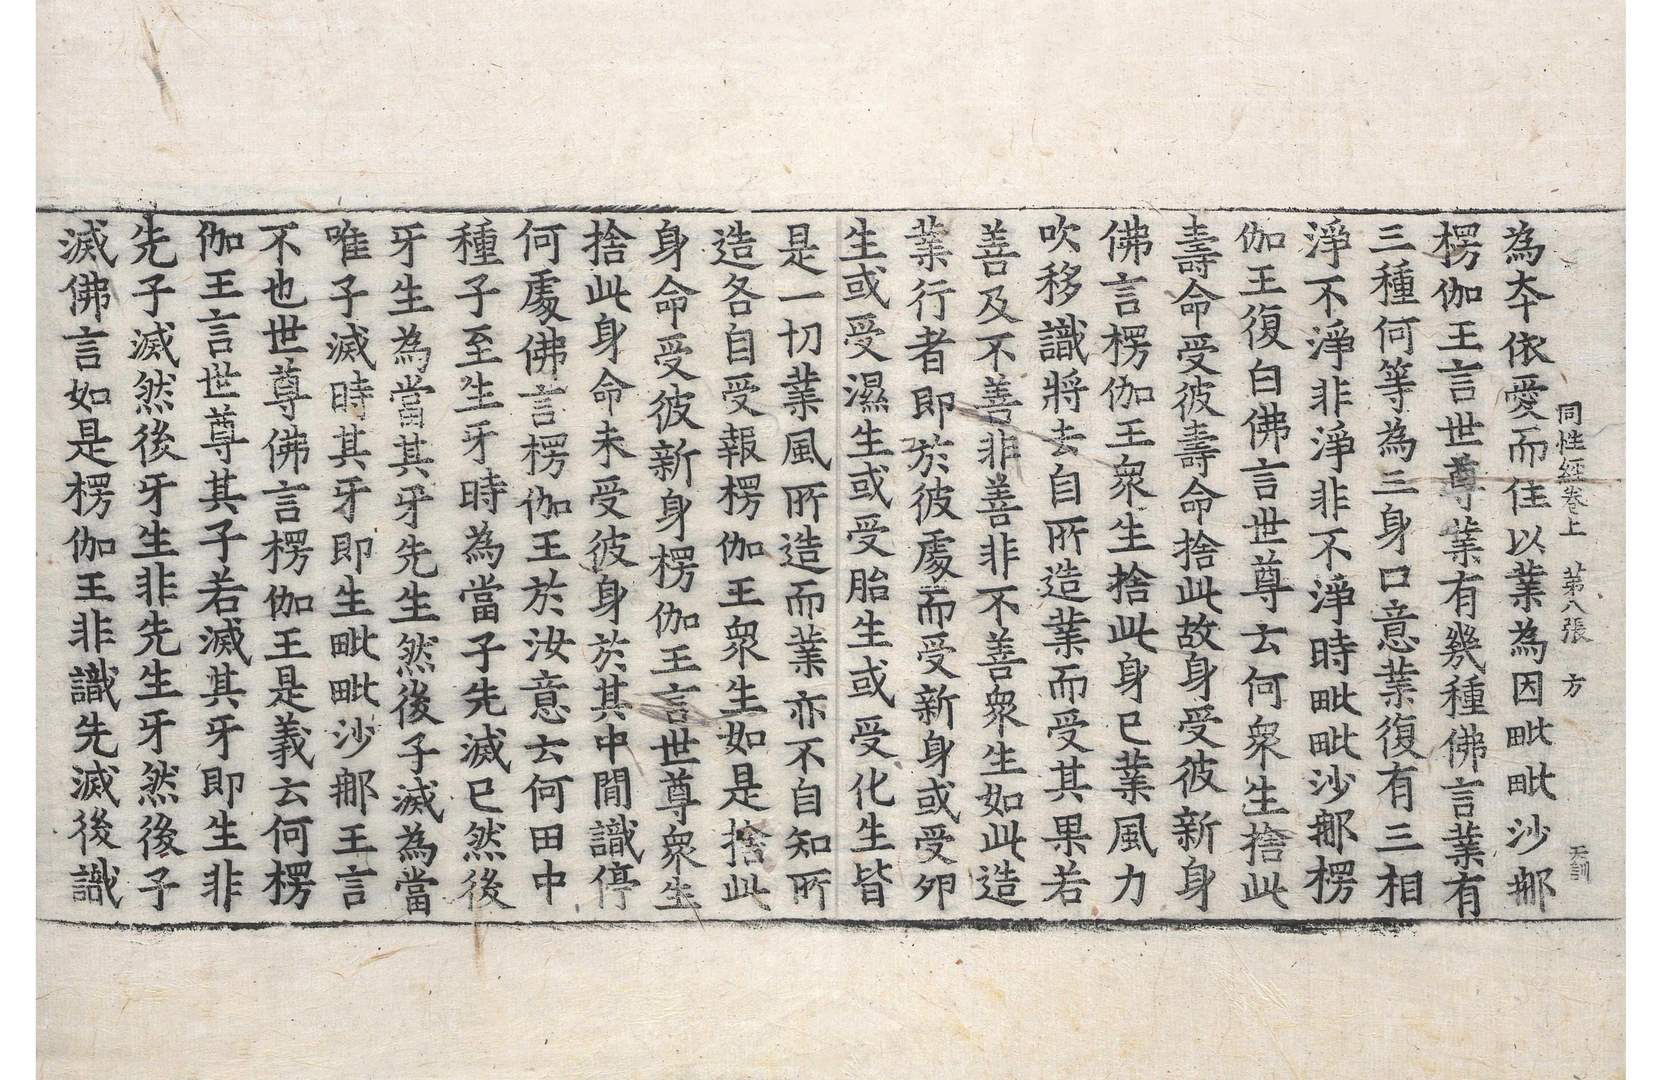 同性經卷上 第八張 方 天訓
為夲依愛而住以業為因毗毗沙𨚗
楞伽王言世尊業有幾種佛言業有
三種何等為三身口意業復有三相
淨不淨非淨非不淨時毗毗沙𨚗楞
伽王復白佛言世尊云何眾生捨此
壽命受彼壽命捨此故身受彼新身
佛言楞伽王眾生捨此身已業風力
吹移識將去自所造業而受其果若
善及不善非善非不善眾生如此造
業行者即於彼處而受新身或受卵
生或受濕生或受胎生或受化生皆
是一切業風所造而業亦不自知所
造各自受報楞伽王眾生如是捨此
身命受彼新身楞伽王言世尊眾生
捨此身命未受彼身於其中間識停
何處佛言楞伽王於汝意云何田中
種子至生牙時為當子先滅已然後
牙生為當其牙先生然後子滅為當
唯子滅時其牙即生毗毗沙𨚗王言
不也世尊佛言楞伽王是義云何楞
伽王言世尊其子若滅其牙即生非
先子滅然後牙生非先生牙然後子
滅佛言如是楞伽王非識先滅後識